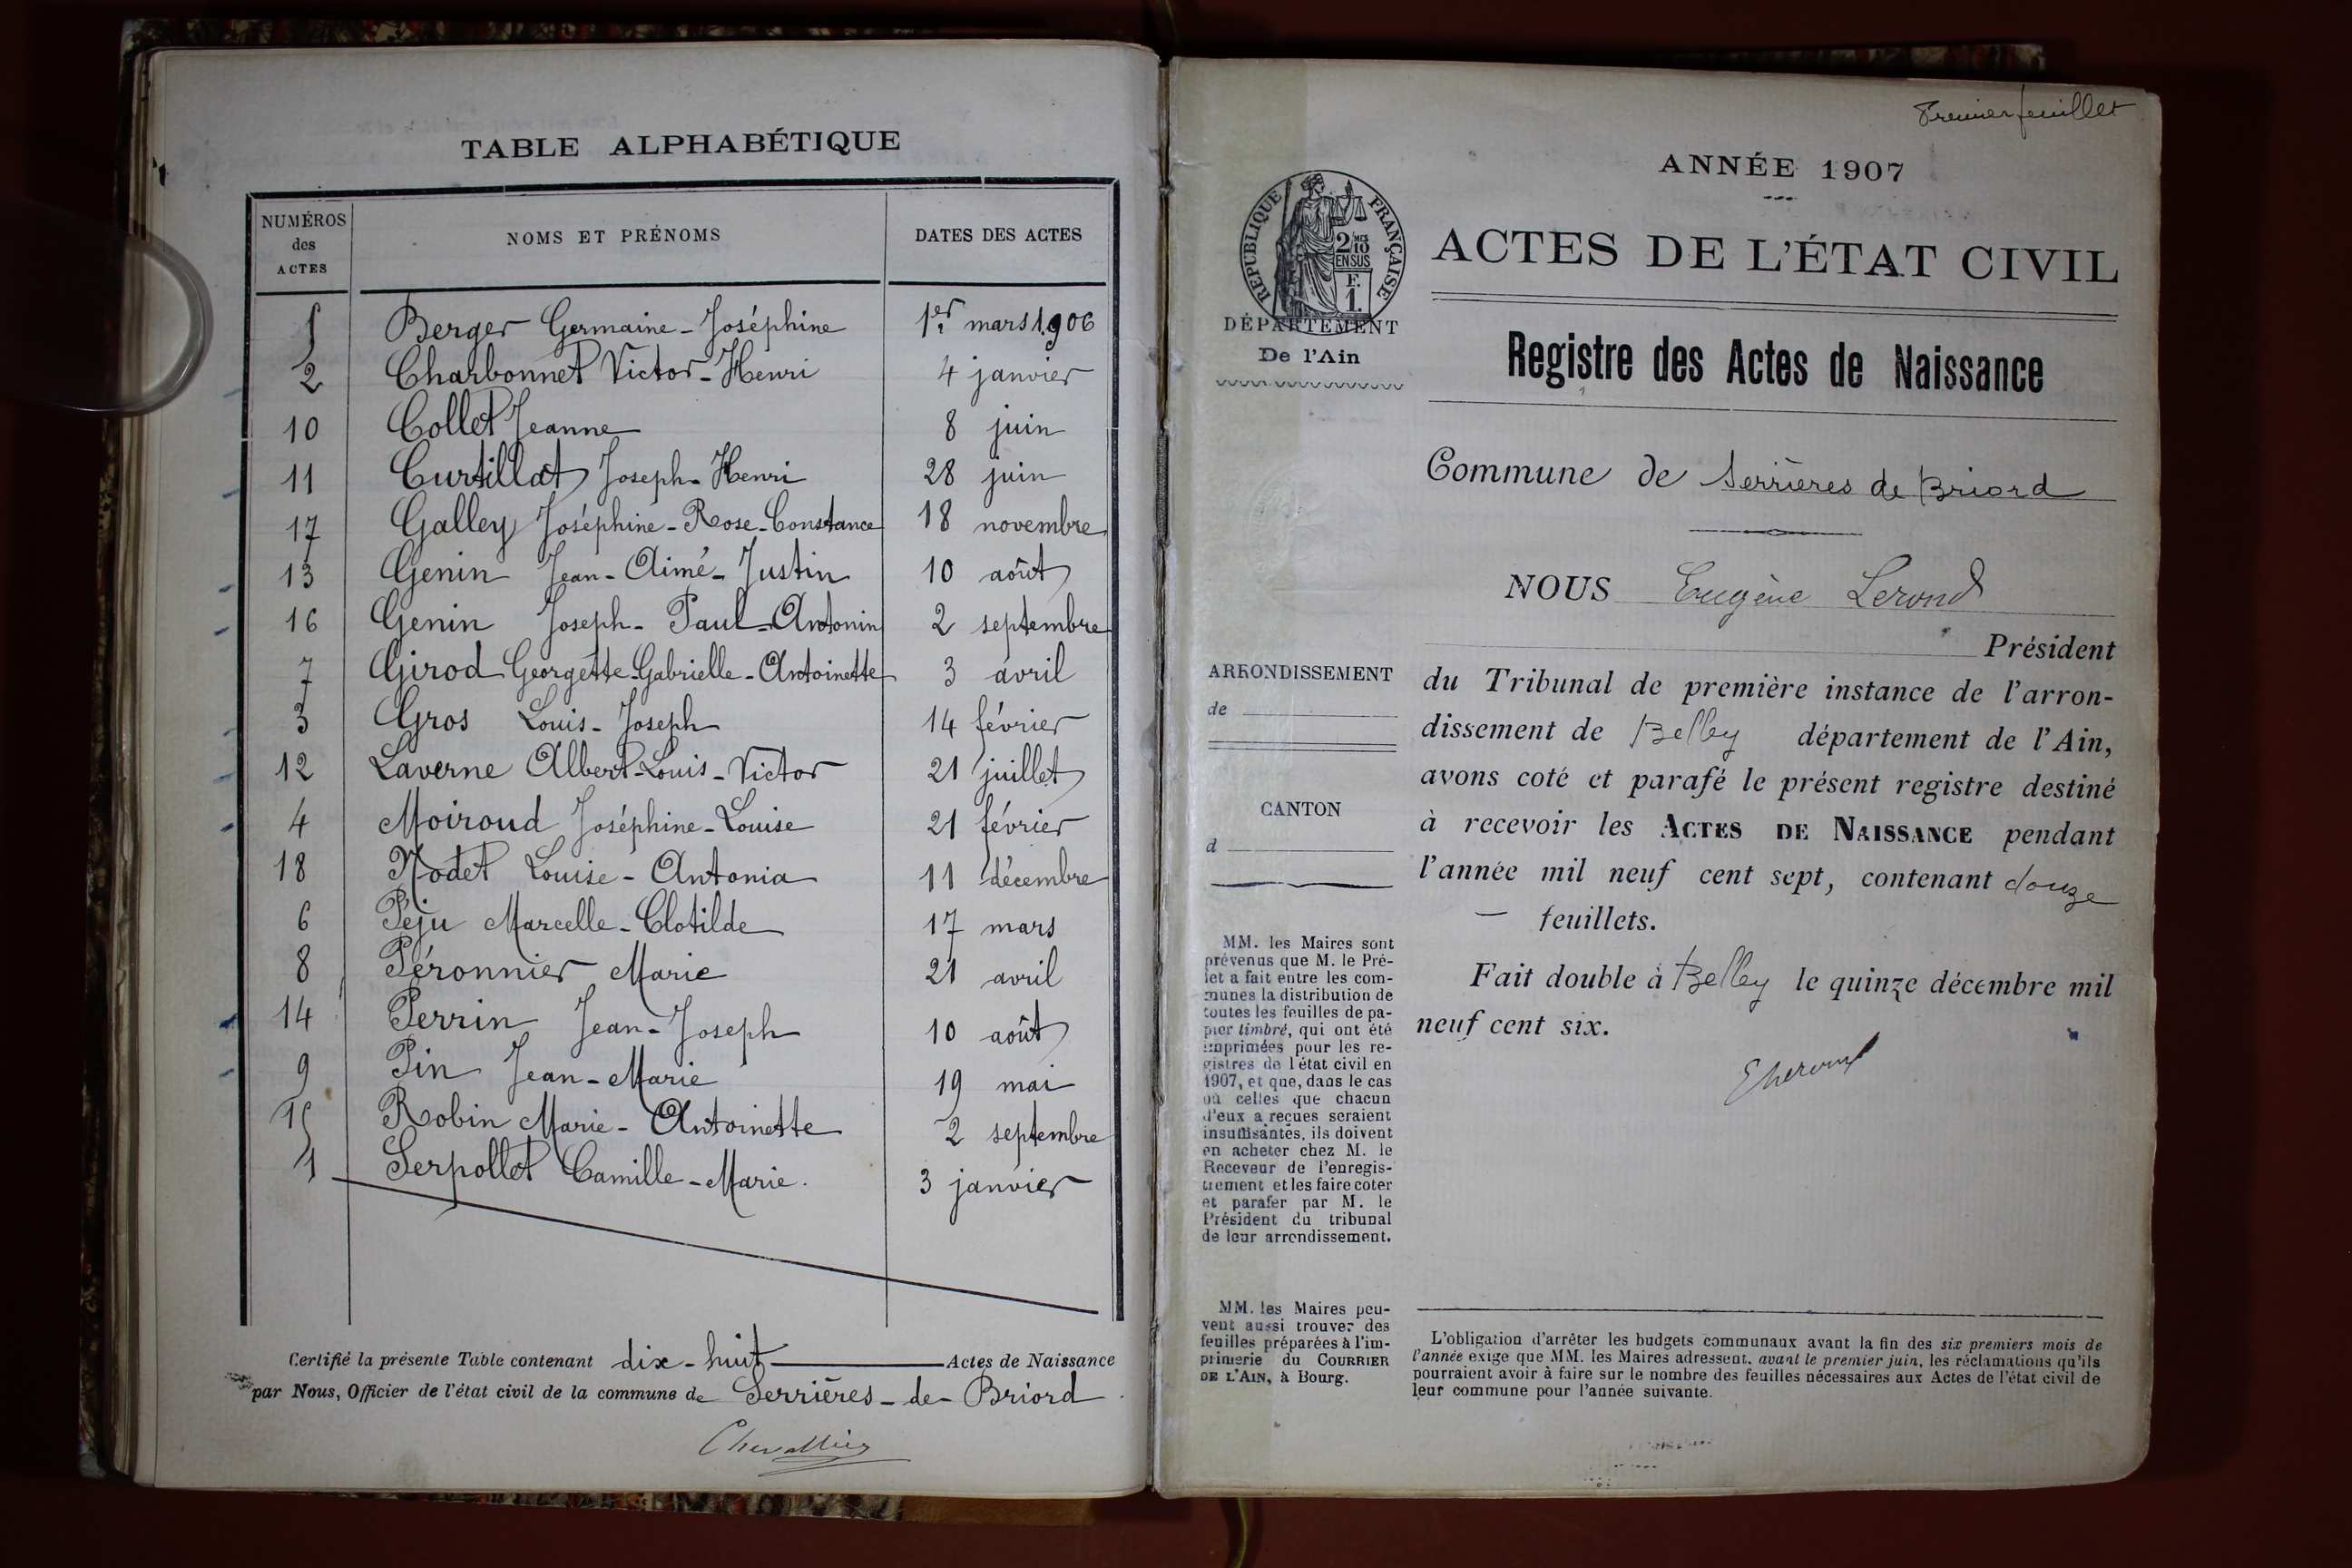 TABLE ALPHABÉTIQUE
NUMÉROS des ACTES NOMS ET PRÉNOMS DATES DES ACTES
5 Berger Germaine-Joséphine 1er mars 1906
2 Charbonnet Victor-Henri 4 janvier
10 Collet Jeanne 8 juin
11 Curtillat Joseph-Henri 28 juin
17 Galley Joséphine-Rose-Constance 18 novembre
13 Genin Jean-Aimé-Justin 10 août
16 Genin Joseph-Paul-Antonin 2 septembre
7 Girod Georgette-Gabrielle-Antoinette 3 avril
3 Gros Louis-Joseph 14 février
12 Laverne Albert-Louis-Victor 21 juillet
4 Moiroud Joséphine-Louise 21 février
18 Nodet Louise-Antonia 11 décembre
6 Péju Marcelle-Clotilde 17 mars
8 Péronnier Marie 21 avril
14 Perrin Jean-Joseph 10 août
9 Pin Jean-Marie 19 mai
15 Robin Marie-Antoinette 2 septembre
1 Serpollet Camille-Marie. 3 janvier
Certifié la présente Table contenant dix-huit Actes de Naissance
par Nous, Officier de l'état civil de la commune de Serrières-de-Briord
Chevallier
Premier feuillet
ANNÉE 1907
ACTES DE L'ÉTAT CIVIL
Registre des Actes de Naissance
RÉPUBLIQUE FRANÇAISE
2/10MES
EN SUS
F.
1.
DÉPARTEMENT
De l'Ain
Commune de Serrières de Briord
NOUS Eugène Lerond
Président
du Tribunal de première instance de l'arron-
dissement de Belley département de l'Ain,
avons coté et parafé le présent registre destiné
à recevoir les ACTES DE NAISSANCE pendant
l'année mil neuf cent sept, contenant douze
— feuillets.
Fait double à Belley le quinze décembre mil
neuf cent six.
ELerond
ARRONDISSEMENT
de
CANTON
d
MM. les Maires sont
prévenus que M. le Pré-
fet a fait entre les com-
munes la distribution de
toutes les feuilles de pa-
pier timbré, qui ont été
imprimées pour les re-
gistres de l'état civil en
1907, et que, dans le cas
où celles que chacun
d'eux a reçues seraient
insuffisantes, ils doivent
en acheter chez M. le
Receveur de l'enregis-
trement et les faire coter
et parafer par M. le
Président du tribunal
de leur arrondissement.
MM. les Maires peu-
vent aussi trouver des
feuilles préparées à l'im-
primerie du COURRIER
DE L'AIN, à Bourg.
L'obligation d'arrêter les budgets communaux avant la fin des six premiers mois de
l'année exige que MM. les Maires adressent, avant le premier juin, les réclamations qu'ils
pourraient avoir à faire sur le nombre des feuilles nécessaires aux Actes de l'état civil de
leur commune pour l'année suivante.